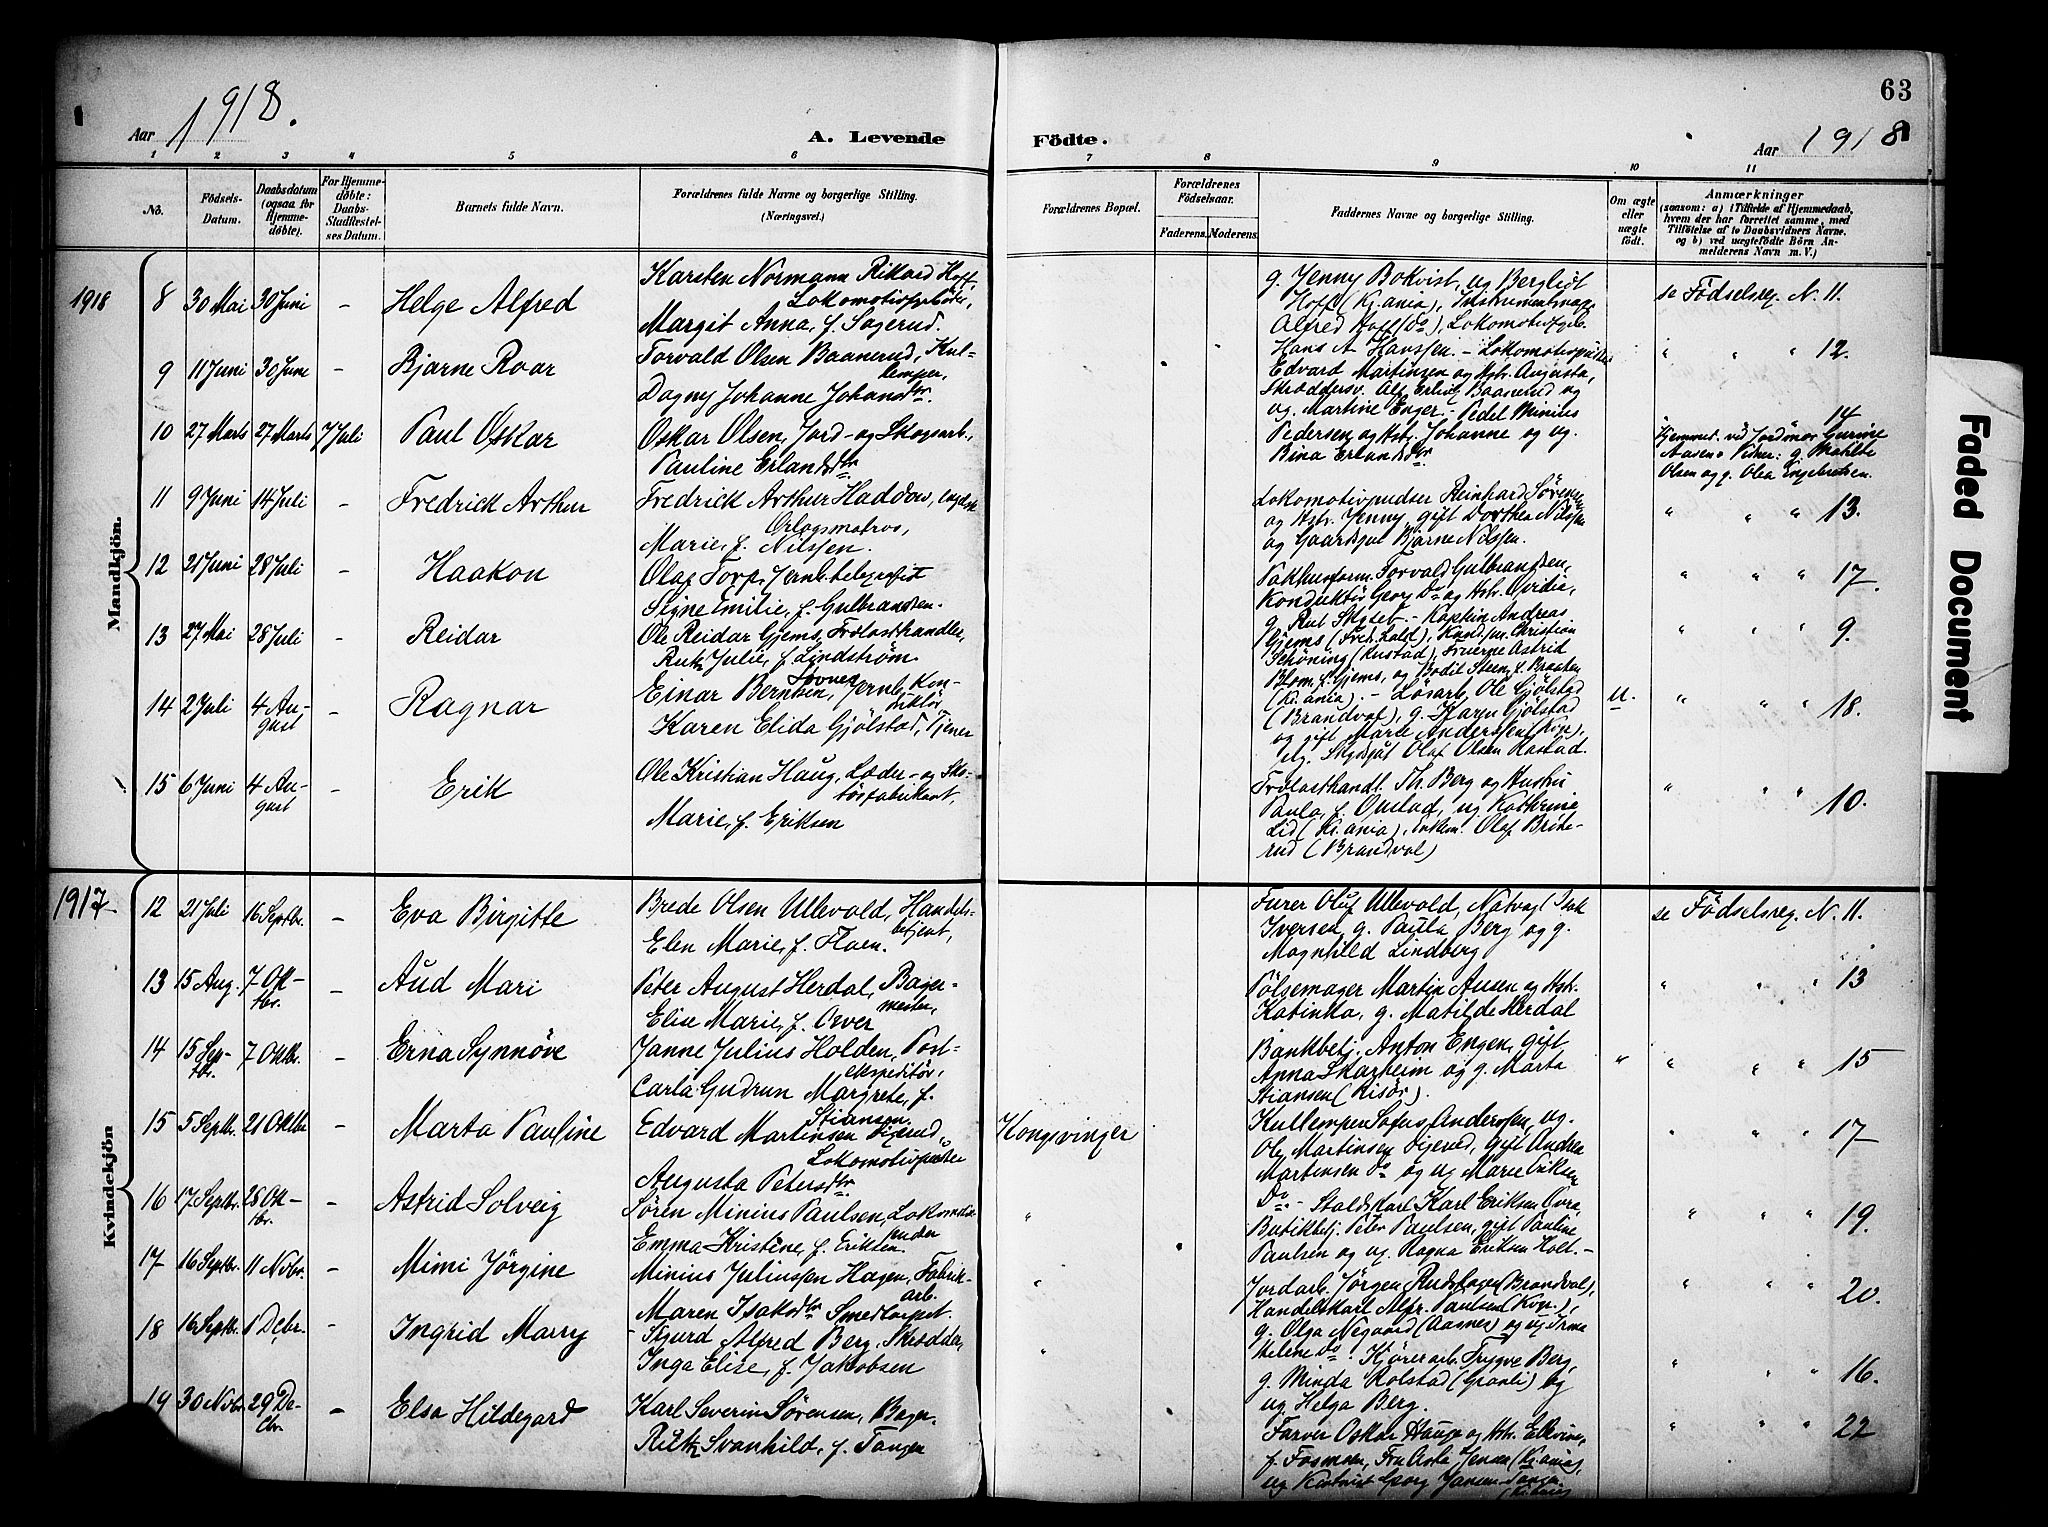 63
Aar 1918.
A. Levende Födte.
Aar 1918
1 2 3 4 5 6 7 8 9 10 11
No.
Födsels-Datum.
Daabsdatum (ogsaa for Hjemmedøbte).
For Hjemmedøbte: Daabs-Stadfæstelses Datum.
Barnets fulde Navn.
Forældrenes fulde Navne og borgerlige Stilling. (Næringsvei.)
Forældrenes Bopæl.
Forældrenes Födselsaar.
Faderens. Moderens.
Faddernes Navne og borgerlige Stilling.
Om ægte eller uægte født.
Anmærkninger
(saasom: a) i Tilfælde af Hjemmedaab,
hvem der har forrettet samme, med
Tilføielse af to Daabsvidners Navne,
og b) ved uegtefödte Börn An-
melderens Navn m. V.)
Mandkjön.
1918 8 30 Mai 30 Juni - Helge Alfred
Karsten Normann Rikard Hoff,
Lokomotivfyrbøder,
Margit Anna, f. Sagerud.
g. Jenny Bokvist, ug Bergljot
Hoff (Kr.ania), Instrumentmag.
Alfred Hoff (Do), Lokomotivfyrb.
Hans A Hanssen. -
se Födselsreg. N. 11.
9 11 Juni 30 June - Bjarne Roar
Torvald Olsen Baanerud, Kul-
lemper,
Dagny Johanne Johansdtr.
Lokomotivpudser
Edvard Martinsen og Hstr. Augusta,
Skræddersv. Alf Erling Baanerud og
ug. Martine Enger. -
" " " 12.
10 27 Marts 27 Marts 7 Juli Paul Oskar
Oskar Olsen, Jord- og Skogsarb.,
Pauline Erlandsdtr.
Pedel Minius
Pedersen og Hstr. Johanne og ug.
Bina Erlandsdtr.
14
Hjemmed. ved Jordmor Gurine
Aasen. Vidner: g. Mathilde
Olsen og g. Olea Engebretsen.
11 9 Juni 14 Juli - Fredrick Arthur
Fredrick Arthur Haddow, engelsk
Orlogsmatros,
Marie, f. Nilssen.
Lokomotivpudser Reinhard Sørensen
og Hstr. Jenny, gift Dorthea Nilssen
og Gaardsgut Bjarne Nilssen.
" " " 13.
12 21 Juni 28 Juli - Haakon
Olaf Torp, Jernb.telegrafist
Signe Emilie, f. Gulbrandsen.
Pakhusform. Torvald Gulbrandsen,
Konduktör Georg Do og Hstr. Ovidia,
g. Rut Skyset. -
" " " 17.
13 27 Mai 28 Juli - Reidar
Ole Reidar Gjems, Trælasthandler,
Rutz Julie, f. Lindström.
Kaptein Andreas
Gjems (Fred.hald), Kand. Christian
Schöning (Rustad), Fruerne Astrid
Blom, f. Gjems, og Bodil Steen, f. Braaten
(Kr.ania). -
" " " 9.
14 2 Juli 4 August - Ragnar
Einar Berntsen Sovnes, Jernb. Kon-
duktör
Karen Elida Gjölstad, Tjener
Lösarb. Ole Gjölstad
(Brandval), g. Karen Gjölstad
og gift Marie Anderssen (Kgv.),
Skydsgut Olaf Olsen Rastad.
u. " " " 18.
15 6 Juni 4 August - Erik
Ole Kristian Haug, Læder- og Sko-
töifabrikant,
Marie, f. Eriksen
Trælasthandl. Th. Berg og Hustru
Paula, f. Opstad, ug Kathrine
Lid (Kr.ania), Enkem. Olaf Brite-
rud (Brandval)
" " " 10.
Kvindekjön
1917 12 21 Juli 16 Septbr. - Eva Birgitte
Brede Olsen Ullevold, Handels-
betjent,
Elen Marie, f. Floen.
Furer Oluf Ullevold, Natvagt Isak
Iversen, g. Paula Berg og g.
Magnhild Lindberg
se Födselsreg. N. 11.
13 15 Aug. 7 Oktbr. - Aud Mari
Peter August Herdal, Bager-
mester,
Elise Marie, f. Orver
Pölsemager Martin Ausen og Hstr.
Katinka, g. Matilde Herdal
" " " 13
14 15 Septbr. 7 Oktbr. - Erna Synnöve
Janne Julius Holden, Post-
ekspeditör,
Carla Gudrun Margrete, f.
Stiansen.
Bankbetj. Anton Engen, gift
Anna Skarheim og g. Marta
Stiansen (Risör).
" " " " 15
15 5 Septbr. 21 Oktbr - Marta Pauline
Edvard Martinsen Digerud,
Lokomotivpudser
Augusta Petersdtr.
Kongsvinger
Kullemper Sofus Anderssen, ug.
Ole Martinsen Digerud, gift Andrea
Martinsen Do og ug Marie Eriksen
Do. -
" " " 17
16 17 Septbr. 28 Oktbr. - Astrid Solveig
Sören Minius Paulsen, Lokomotiv-
pudser
Emma Kristine, f. Eriksen.
"
Staldskarl Karl Eriksen Overn,
Butikbetj. Peter Paulsen, gift Pauline
Paulsen og ug. Ragna Eriksen Holt. -
" " " 19.
17 16 Septbr. 11 Novbr. - Mimi Jörgine
Minius Juliussen Hagen, Fabrik-
arb.
Maren Isaksdtr Smedtorpet.
"
Jordarb. Jörgen Rudshagen (Brandval),
Handelskarl Alfr. Paulsen (Kgv.),
g. Olga Negaard (Aasnes) og ug Irma
Helene Do.
" " " 20.
18 16 Septbr. 1 Debr. - Ingrid Marry
Sigurd Alfred Berg, Skrædder,
Inga Elise, f. Jakobsen
"
Kjörerarb. Trygve Berg,
g. Minda Rolstad (Granli) og
ug. Helga Berg.
" " " 16.
19 30 Novbr 29 Decbr. - Elsa Hildegard
Karl Severin Sørensen, Bager.
Rutz Svanhild, f. Tangen
Farver Oskar Hauge og Hstr. Ellevine,
f. Fosmoen, Fru Asta Jensen (Kr.ania),
ug Kontorist Georg Jansen
" " " 22
Faded Document